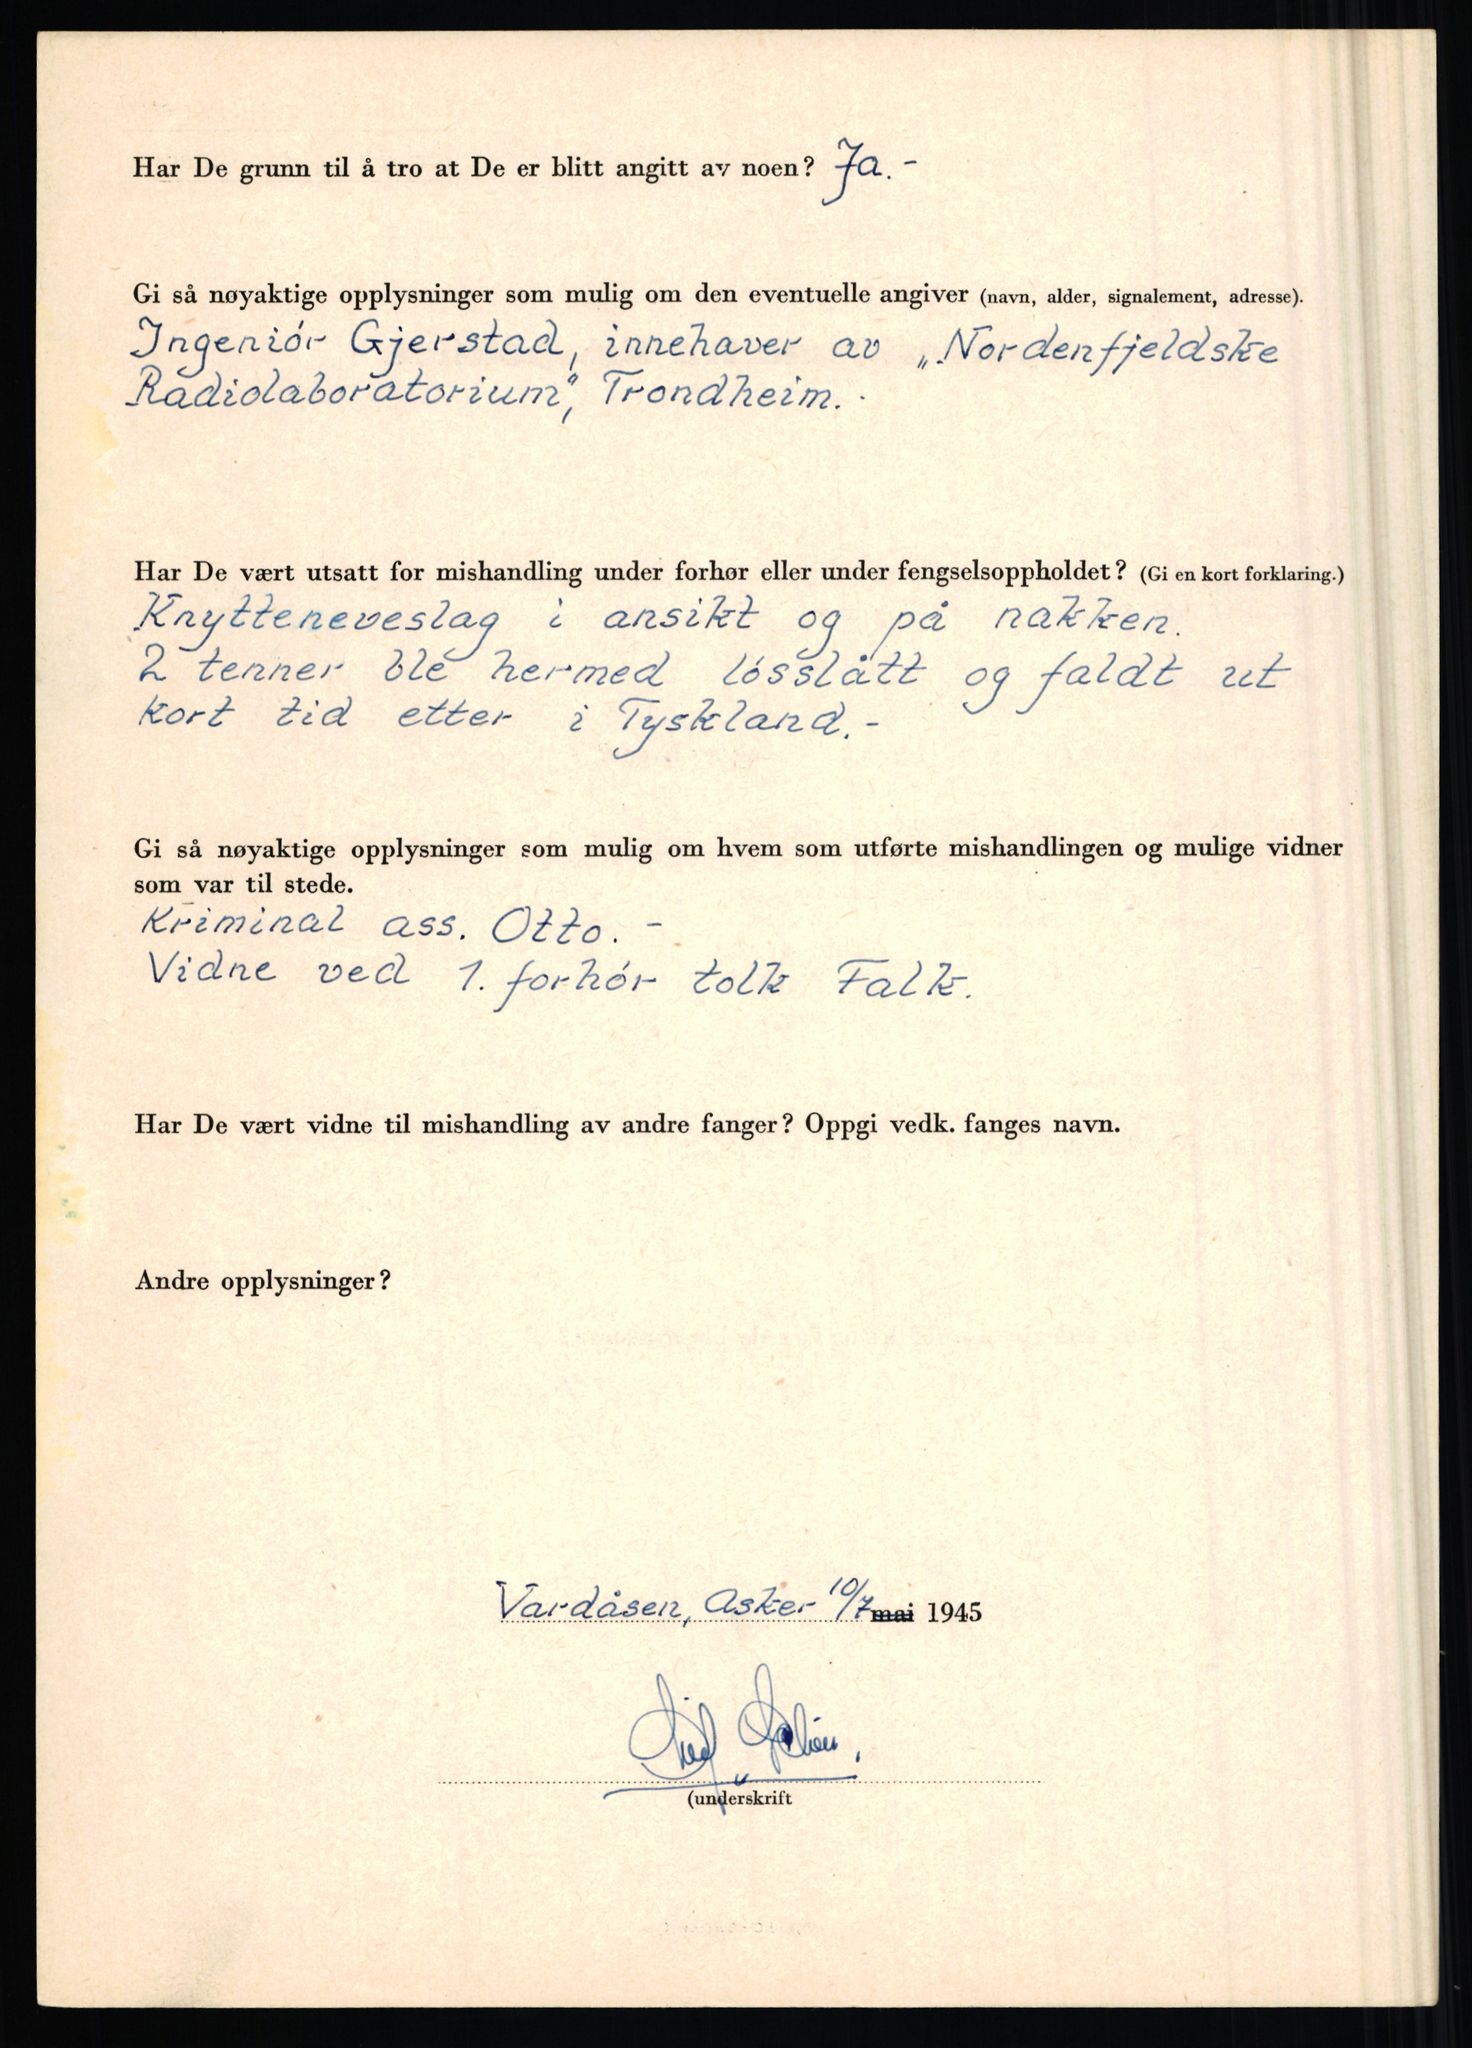 Har De grunn til å tro at De er blitt angitt av noen? Ja.-
Gi så nøyaktige opplysninger som mulig om den eventuelle angiver (navn, alder, signalement, adresse).
Ingeniór Gjerstad, innehaver av „Nordenfjeldske
Radiolaboratorium", Trondheim.
Har De vært utsatt for mishandling under forhør eller under fengselsoppholdet? (Gi en kort forklaring.)
Knytteneveslag i ansikt og på nakken.
2 tenner ble hermed lósslått og faldt ut
kort tid etter i Tyskland.-
Gi så nøyaktige opplysninger som mulig om hvem som utførte mishandlingen og mulige vidner
som var til stede.
Kriminal ass. Otto. -
Vidne ved 1. forhór tolk Falk.
Har De vært vidne til mishandling av andre fanger? Oppgi vedk. fanges navn.
Andre opplysninger?
Vardåsen, Asker 10/7 mai 1945
(underskrift